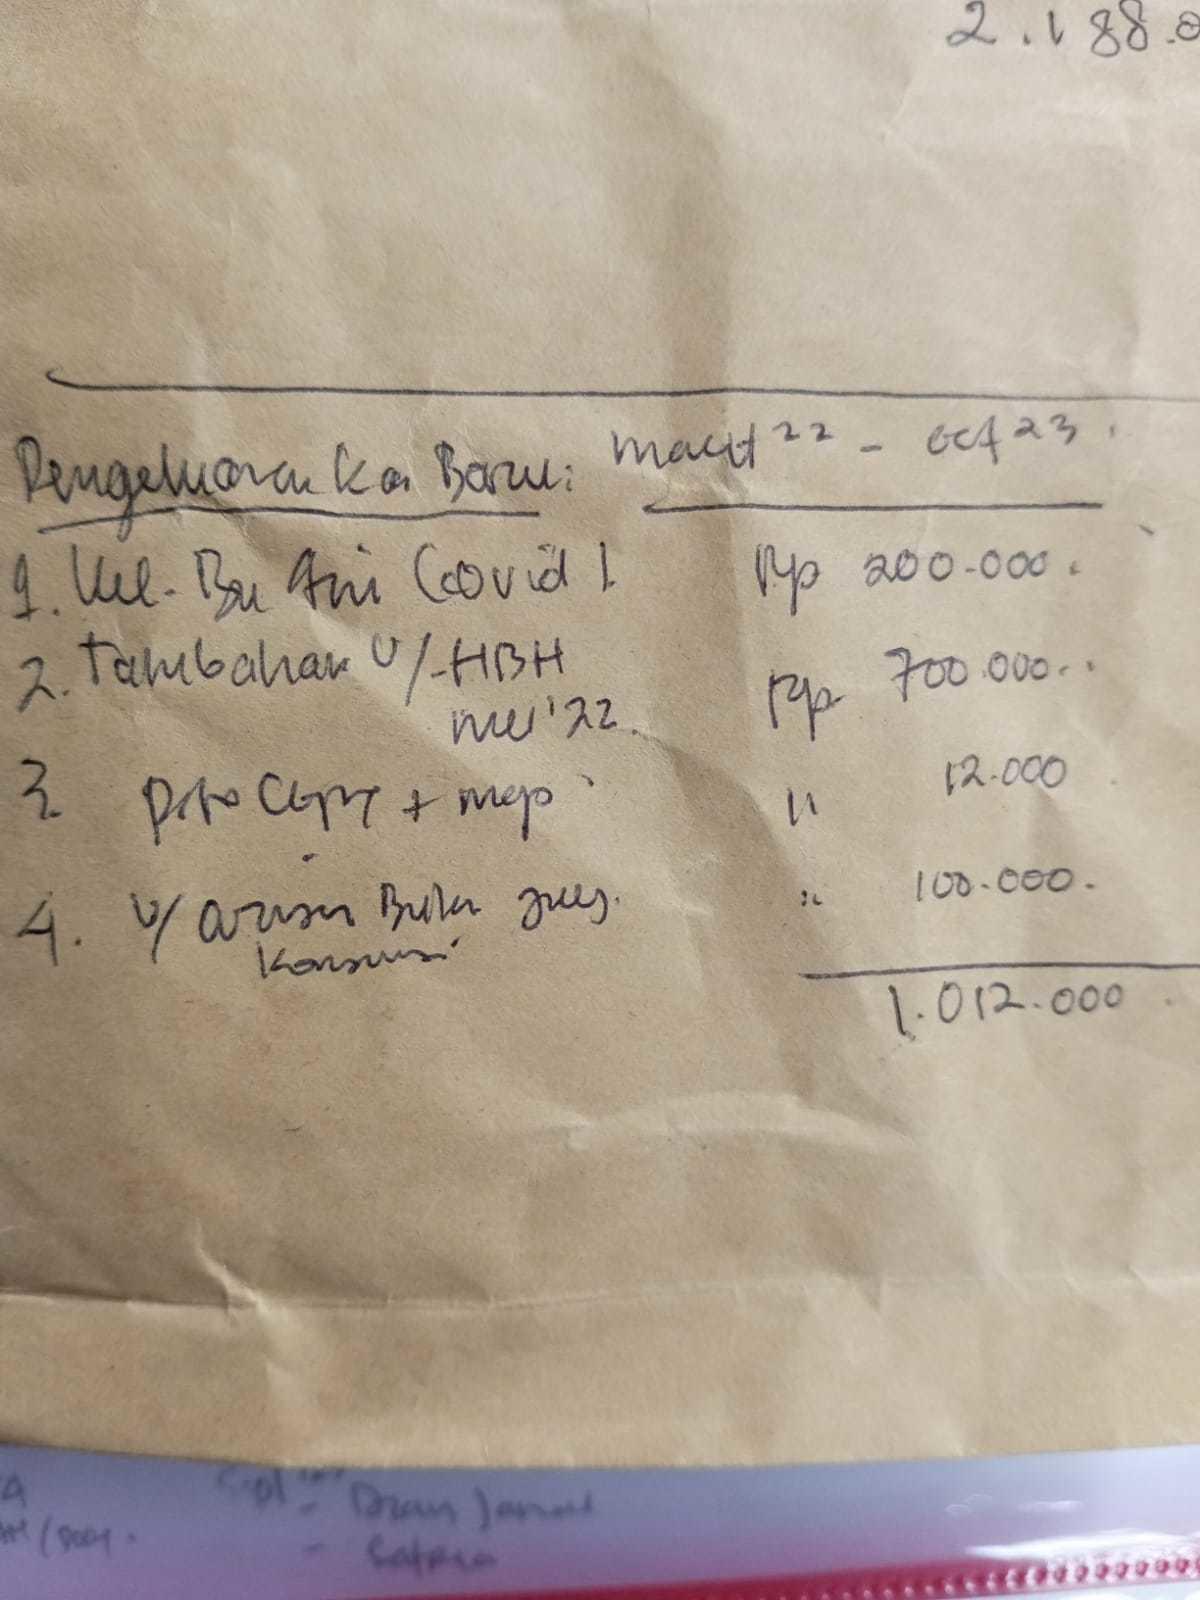 2.188.0
Pengeluaran Kas Baru: Maret 22 - Oct 23.
1. Kel. Bu Ani Covid 1. Rp 200.000.
2. Tambahan U/ HBH Rp 700.000.
Mei '22.
3. Foto Copy + map " 12.000
4. U/ arisan Bulan " 100.000.
Konsumsi
1.012.000